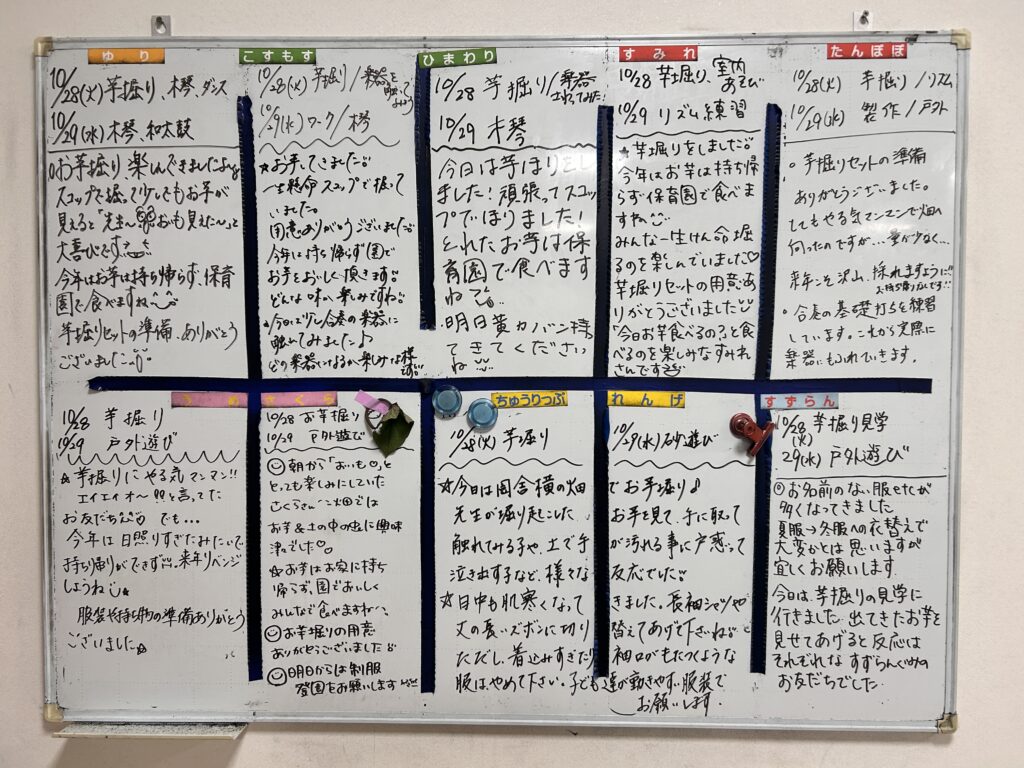 ゆり
10/28(火)芋掘り、木琴、ダンス
10/29(水)木琴、和太鼓
お芋掘り楽しんできましたよ
スコップで掘って少しでもお芋が
見えると「先生〜おいも見えた〜」って
大喜びです
今年はお芋は持ち帰らず、保育
園で食べますね
芋掘りセットの準備、ありがとう
ございました
こすもす
10/28(火)芋掘り/楽器を触ってみよう
10/29(水)ワーク/木琴
★お芋で
一生懸命スコップで掘って
いました。
用意ありがとうございました
今年は持ち帰らず園で
お芋をおいしく頂きます。
どんな味か楽しみですね
今日は少し合奏の楽器に
触れてみました♪
どの楽器になるか楽しみ
ひまわり
10/28 芋掘り/楽器さわってみた
10/29 木琴
今日は芋ほりをし
ました!頑張ってスコッ
プでほりました!
とれたお芋は保
育園で食べます
ねて
明日黄カバン持っ
てきてください
ね
すみれ
10/28 芋掘り、室内あそび
10/29 リズム練習
★芋掘りをしました
今年はお芋は持ち帰
らず保育園で食べま
すね
みんな一生けん命堀
るのを楽しんでいました♡
芋堀りセットの用意あ
りがとうございました
「今日お芋食べるの?」と食
べるのを楽しみなすみれ
さんです
たんぽぽ
10/28(火) 芋掘り/リズム
10/29(水) 製作/戸外
○芋掘りセットの準備
ありがとうございました。
とてもやる気マンマンで畑へ
行ったのですが…量が少なく…
来年こそ沢山、採れますように!!
○合奏の基礎打ちを練習
しています。これから実際に
楽器にもふれていきます。
うめ
10/28 芋掘り
10/29 戸外遊び
★芋掘りにやる気マンマン!!
エイエイオ〜!!と言ってた
お友だち でも…
今年は日照りすぎたみたいで
持ち帰りができず、来年リベンジ
しようね
服装や持ち物の準備ありがとう
ございました☆
さくら
10/28 お芋掘り
10/29 戸外遊び
朝から「おいも♡」と
とっても楽しみにしていた
さくらさん 畑では
お芋&土の中の虫に興味
津々でした♡
☆お芋はお家に持ち
帰らず、園でおいしく
みんなで食べますね
お芋掘りの用意
ありがとうございました
明日からは制服
登園をお願いします
ちゅうりっぷ
れんげ
10/28(火)芋掘り
10/29(水)砂遊び
☆今日は園舎横の畑でお芋掘り♪
先生が堀り起こしたお芋を見て、手に取って
触れてみる子や、土で手が汚れる事に戸惑って
泣き出す子など、様々な反応でした
☆日中も肌寒くなってきました。長袖シャツや
丈の長いズボンに切り替えてあげて下さいね
ただし、着込みすぎたり袖口がもたつくような
服はやめて下さい。子ども達が動きやすい服装で
お願いします。
すずらん
10/28(火) 芋掘り見学
29(水) 戸外遊び
お名前のない服etcが
多くなってきました
夏服→冬服への衣替えで
大変かとは思いますが
宜しくお願いします
今日は、芋掘りの見学に
行きました 出てきたお芋を
見せてあげると反応は
それぞれな すずらんぐみの
お友だちでした